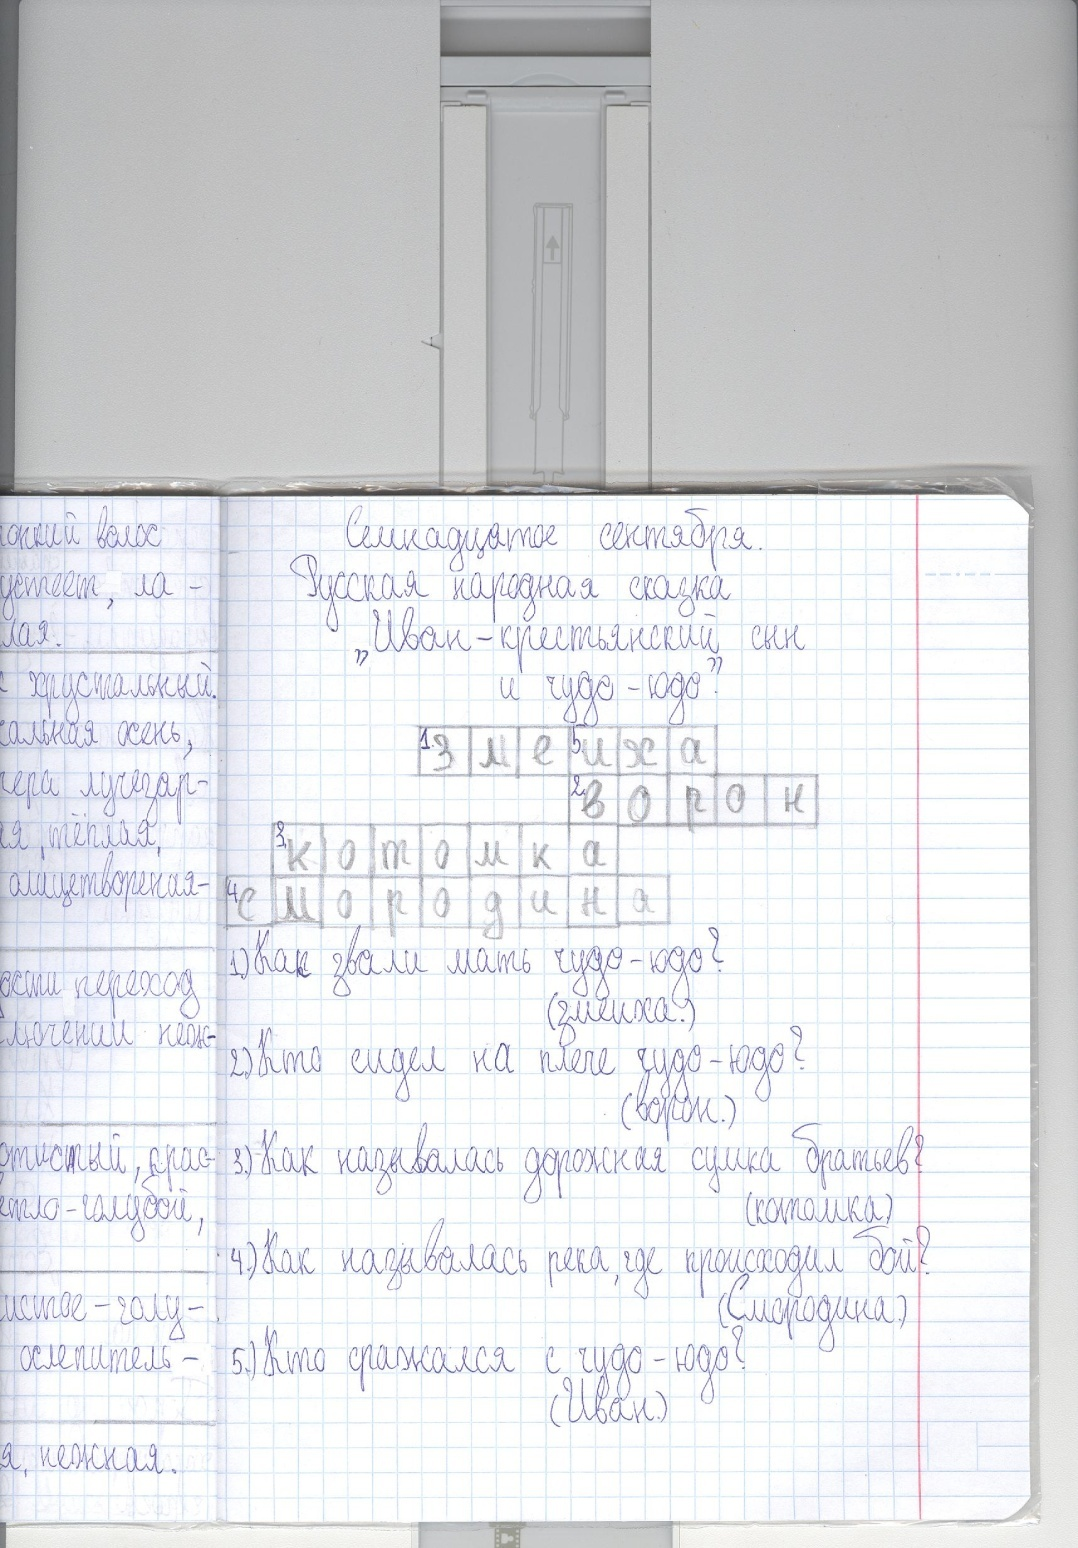 онкий волос
устеет, ла-
лая.
с хрустальный.
сальная осень,
чера лучезар-
ая, тёплая,
олицетворения-
ости переход
ключении неж-
отистый, крас-
етло-голубой,
истое-голу-
ослепитель-
я, нежная.
Семнадцатое сентября.
Русская народная сказка
„Иван-крестьянский сын
и чудо-юдо"
1. З м е 5. и х а
2. в о р о н
3. к о т о м к а
4. С м о р о д и н а
1.) Как звали мать чудо-юдо?
(змеиха.)
2.) Кто сидел на плече чудо-юдо?
(ворон.)
3.) Как называлась дорожная сумка братьев?
(котомка)
4.) Как называлась река, где происходил бой?
(Смородина.)
5.) Кто сражался с чудо-юдо?
(Иван.)